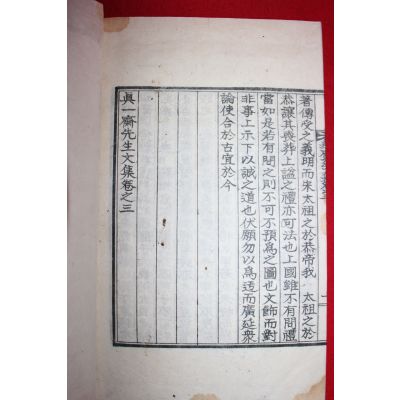 著傳受之義明而宋太祖之於恭帝我 太祖之於
恭讓其喪葬上諡之禮亦可法也上國雖不有問禮
當如是若有問之則不可不預爲之圖也文飾而對
非事上示下以誠之道也伏願勿以爲迃而廣延衆
論使合於古宜於今
眞一齋先生文集卷之三